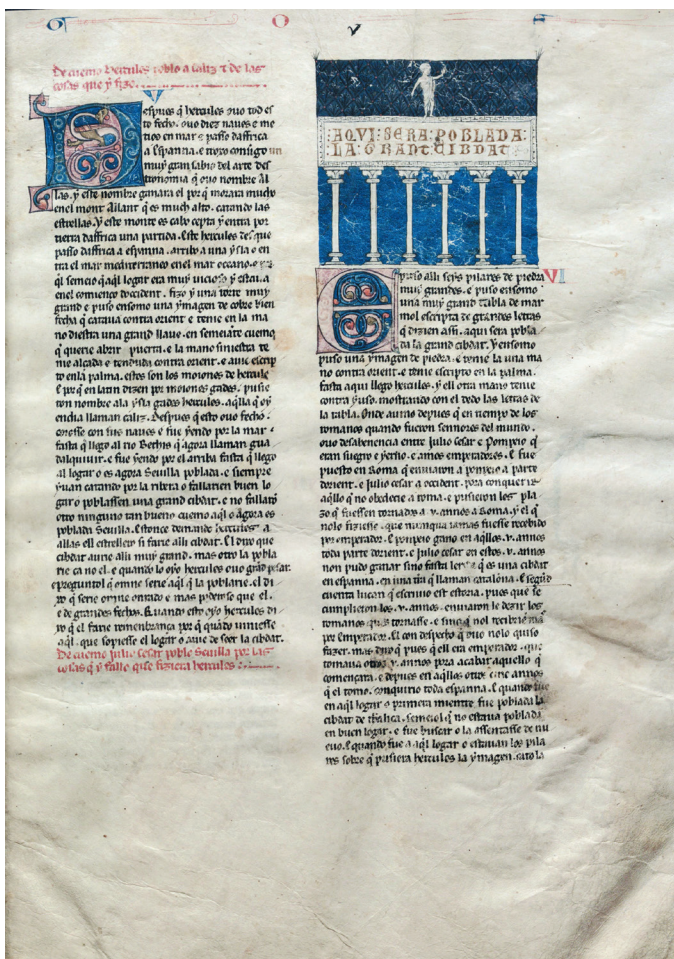 O V
De cuemo hercules poblo a caliz τ de las
cosas que y fizo
V
Despues q̃ hercules ouo tod es
to fecho. ouo diez naues e me
tios en mar e passo daffrica
a Espanna. e troxo consigo un
muy gran sabio del arte des
tronomia q̃ ouo nombre al
las. y este nombre ganara el por q̃ moraua mucho
enel mont allant q̃ es much alto. catando las
estrellas. Y este monte es cabo cepta y entra por
tierra daffrica una partida. Este hercules des que
passo daffrica a espanna. arribo a una ysla o en
tra el mar mediterraneo enel mar occeano. e por
q̃l semeio q̃ aql logar era muy uicioso y estaua
enel comienço doccident. fizo y una torre muy
grand e puso ensomo una ymagen de cobre bien
fecha q̃ cataua contra orient e tenie en la ma
no diestra una grand llaue. en semeiante cuemo
q̃ querie abrir puerta. e la mano siniestra te
nie alçada e tenduda contra orient. e auie escrip
to enla palma. estos son los moiones de hercule
E por q̃ en latin dizen por moiones gades. pusie
ron nombre ala ysla gades hercules. aqlla q̃ oy
endia llaman caliz. Despues q̃ esto ouo fecho.
coiosse con sus naues e fue yendo por la mar
fasta q̃ llego al rio Bethis q̃ agora llaman gua
dalquiuir. e fue yendo por el arriba fasta q̃ llego
al logar o es agora Seuilla poblada. e siempre
yuan catando por la ribera o fallarien buen lo
gar o poblassen una grand cibdat. e no fallaro
otro ninguno tan bueno cuemo aql o agora es
poblada Seuilla. Estonce demando hercules a
allas ell estrellero si farie alli cibdat. El dixo que
cibdat aurie alli muy grand. mas otro la pobla
rie ca no el. e quando lo oyo hercules ouo grãd pesar.
e preguntol q̃ omne serie aql q̃ la poblarie. el di
xo q̃ serie omne onrado e mas poderoso que el.
e de grandes fechos. Quando esto oyo hercules di
xo q̃ el farie remembrança por q̃ quãdo uiniesse
aql. que sopiesse el logar o auie de seer la cibdat.
De cuemo julio cesar poblo Seuilla por las
cosas q̃ y fallo q̃ se fiziera hercules
AQVI: SERA: POBLADA:
LA GRANT: CIBDAT
VI
E puso alli seys pilares de piedra
muy grandes. e puso ensomo
una muy grand tabla de mar
mol escripta de grandes letras
q̃ dizien assi. aqui sera pobla
da la grand cibdat. Y ensomo
puso una ymagen de piedra. e tenie la una ma
no contra orient. e tenie escripto en la palma.
fasta aqui llego hercules. y ell otra mano tenie
contra yuso. mostrando con el dedo las letras de
la tabla. Onde auino depues q̃ en tiempo de los
romanos quando fueron sennores del mundo.
ouo desabenencia entre julio cesar e Pompeio q̃
eran suegro e yerno. e amos emperadores. E fue
puesto en Roma q̃ enuiaron a pompeio a parte
dorient. e julio cesar a occident. pora conquerir
aqllo q̃ no obedecie a roma. e pusieron les pla
zo q̃ fuessen tornados a .v. annos a Roma. y el q̃
nolo fiziesse. que nunqua iamas fuesse recebido
por emperador. E pompeio gano en aqllos .v. annos
toda parte dorient. e julio cesar en estos .v. annos
non pudo ganar sino fasta q̃ es una cibdat
en espanna. en una tierra q̃ llaman catalonna. E segũd
cuenta lucan q̃ escriuio est estoria. pues que se
cumplieron los .v. annos. enuiaron le dezir los
romanos ques tornasse. e sino q̃ nol recibrie
por Emperador. El con despecho q̃ ouo nolo quiso
fazer. mas dixo q̃ pues q̃ ell era emperador. que
tomaua otros .v. annos pora acabar aquello q̃
començara. e depues en aqllos otros cinc annos
q̃ el tomo. conquirio toda espanna. E quando fue
en aql logar o primera mientre fue poblada la
cibdat de thalica. semeiol q̃ no estaua poblada
en buen logar. e fue buscar o la assentasse de nu
euo. E quando fue a aql logar o estauan los pila
res sobre q̃ pusiera hercules la ymagen. cato la